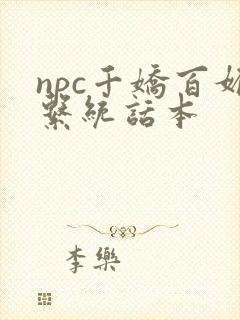 npc千嬌百媚
繫統話本
李樂